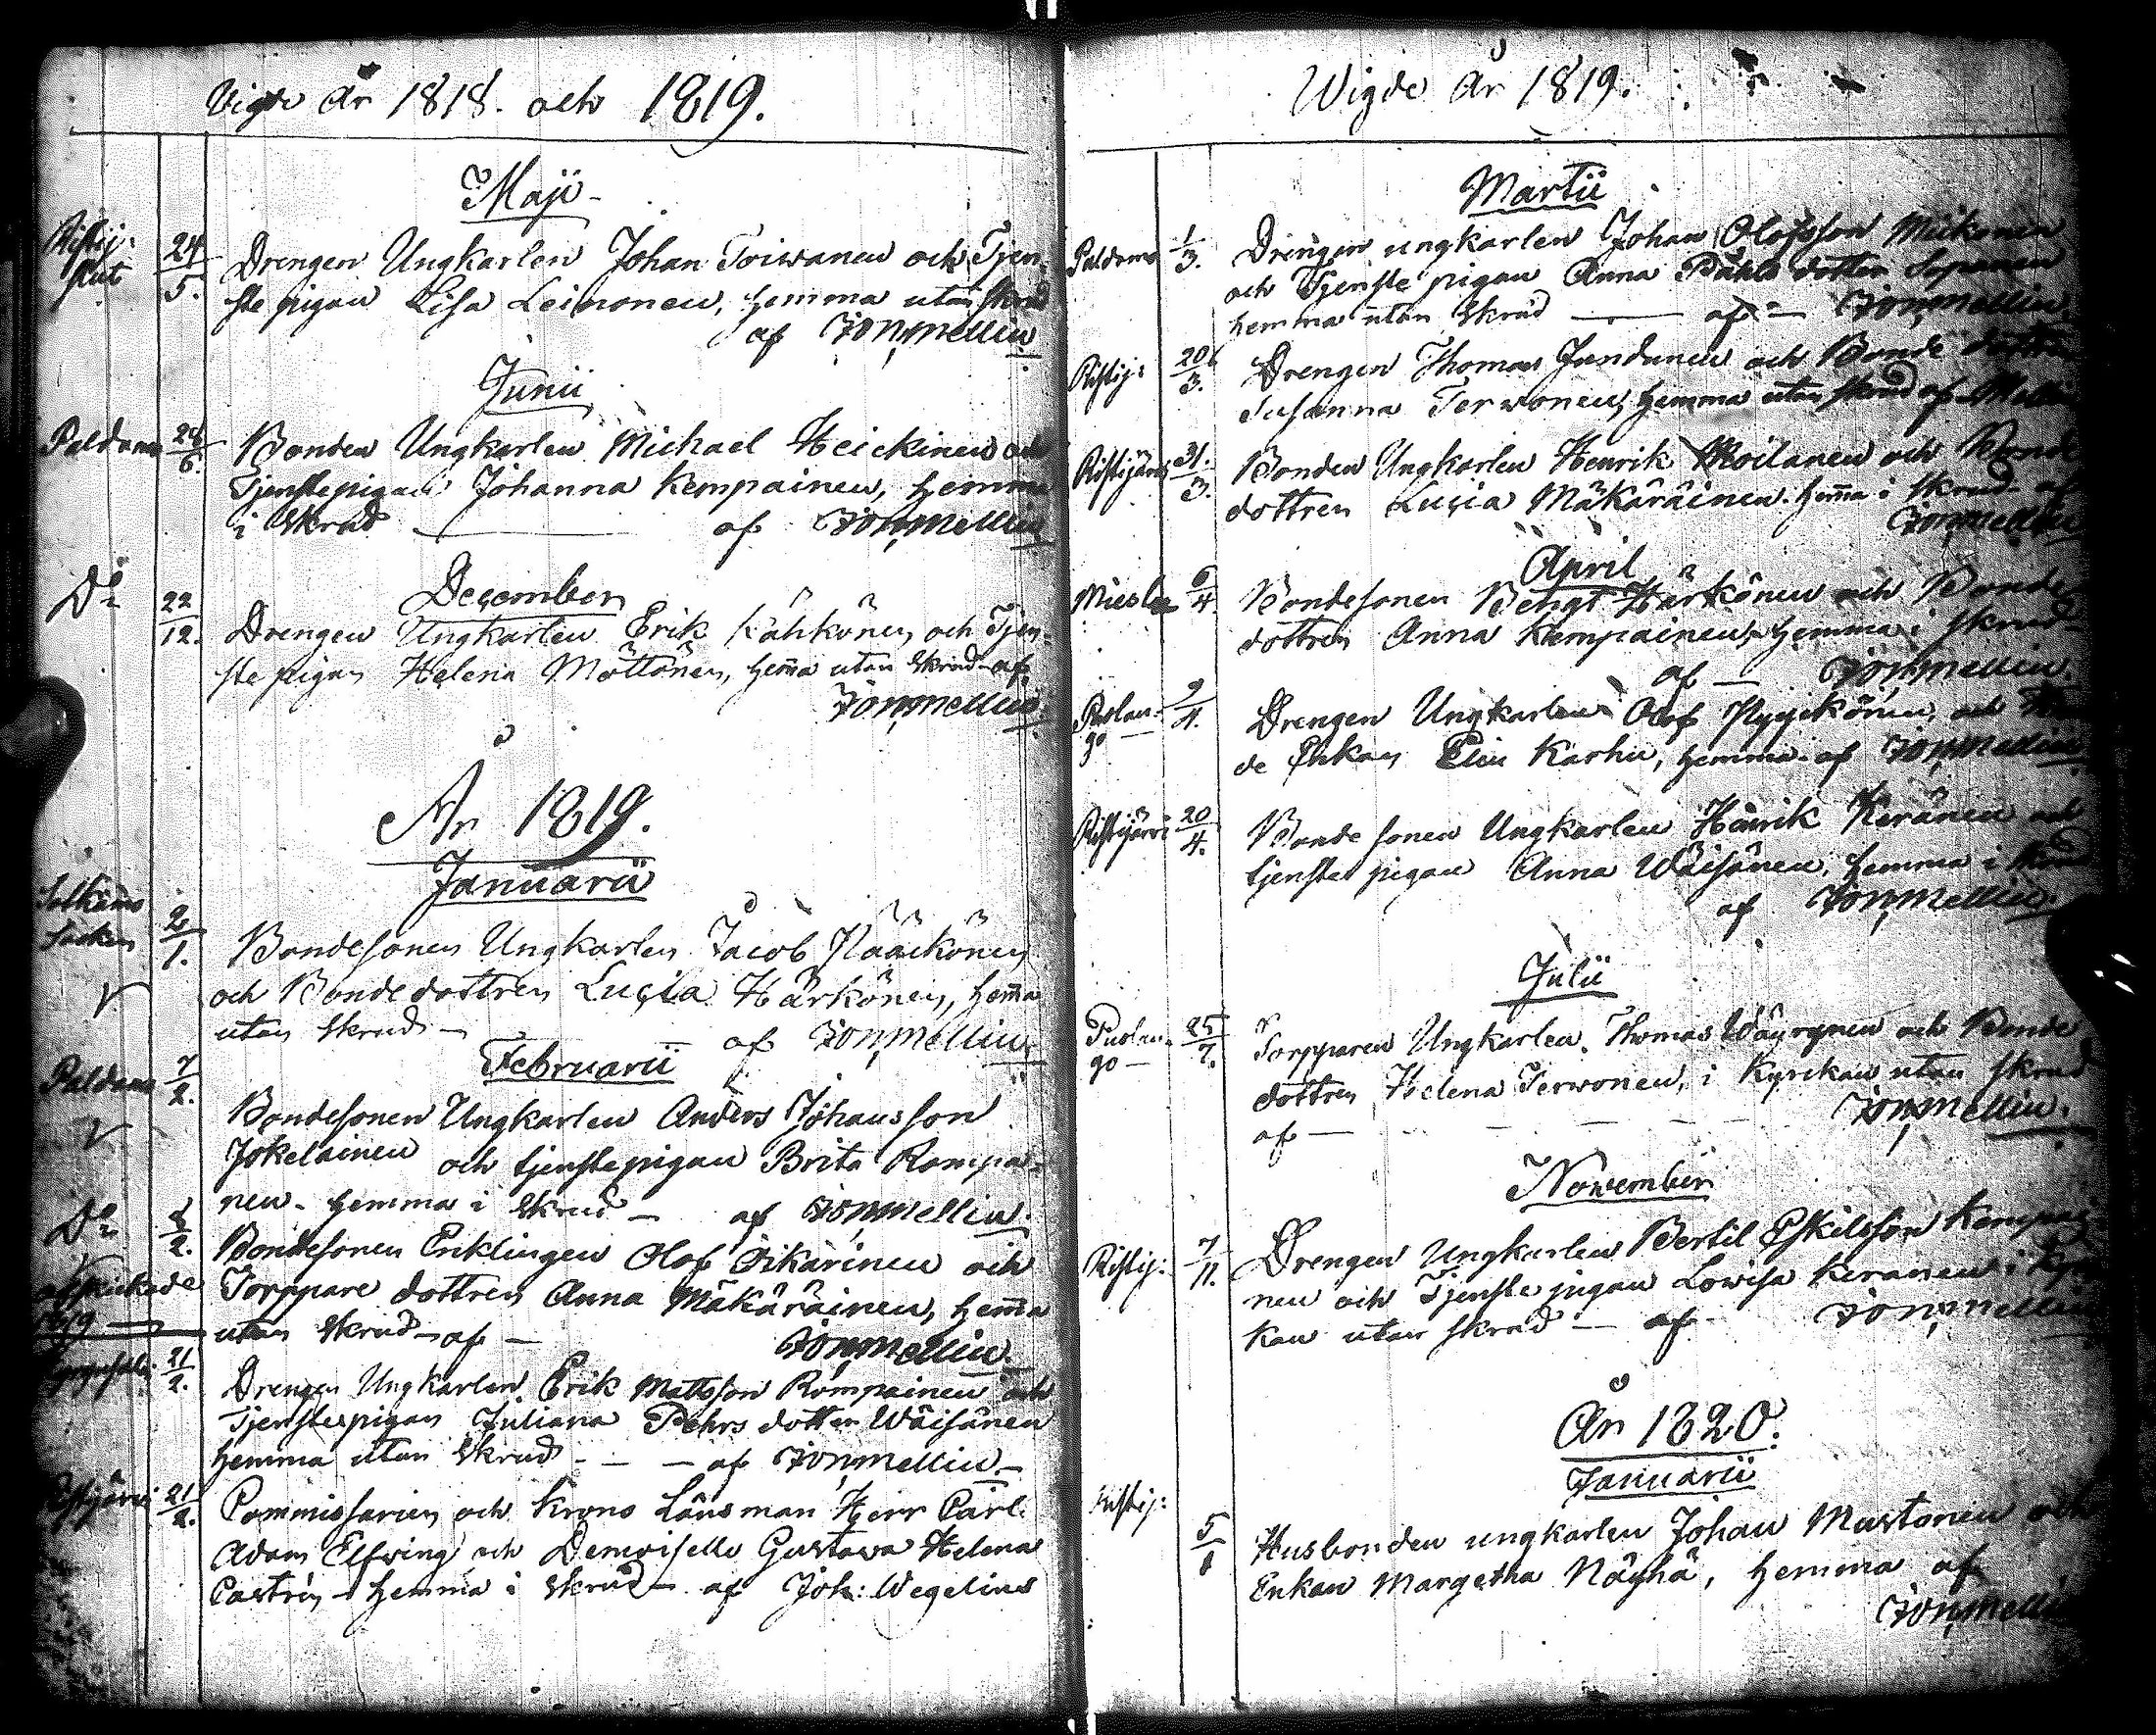 Vigde År 1818. och 1819.
Maji
Ristij: 24/5. Drengen Ungkarlen Johan Toiwanen och Tjen-
ste pigan Lisa Leinonen, hemma utan skrud
af Zon, Mellin
Junii
Paldamo 24/6. Bonden Ungkarlen Michael Heickinen och
Tjenstepigan Johanna Kempainen, hemma
i skrud — af Zon, Mellin
December
Do 22/12. Drengen Ungkarlen Erik Kähkönen och Tjen-
ste pigan Helena Möttönen, hem̄a utan skrud - af
Zon, Mellin
År 1819.
Januarii
Sotkamo
Socken 2/1. Bondesonen Ungkarlen Jacob Pääckönen
och Bonde dottren Lucia Härkönen, hem̄a
utan skrud — af Zon, Mellin
Februarii
Paldamo 7/2. Bondesonen Ungkarlen Anders Johansson
Jokelainen och tjenstepigan Brita Rompai-
nen - hemma i skrud — af Zon, Mellin
Do 2. Bondesonen Enklingen Olof Oikarinen och
Torppare dottren Anna Mäkäräinen, hem̄a
utan skrud - af — Zon, Mellin
1819
21/2. Drengen Ungkarlen Erik Mattsson Rompainen och
Tjenstepigan Juliana Pehrs dotter Wäisänen
hemma utan skrud - — — af Zon, Mellin —
Ristijärvi 21/2. Commissarien och Krono Länsman Herr Carl
Adam Elfwing och Demoiselle Gustava Helena
Castrén - hemma i skrud — af Joh: Wegelius
Wigde År 1819.
Martii
Paldamo 1/3. Drengen ungkarlen Johan Olofsson Mickonen
och Tjenste pigan Anna Påhls dotter Sopanen
hemma utan skrud — af — Zon, Mellin
Ristij: 20/3. Drengen Thomas Jundunen och Bonde dottren
Susanna Terwonen, hemma utan skrud af Mellin
Ristijärvi 31/3. Bonden Ungkarlen Henrik Moilanen och Bonde
dottren Lucia Mäkäräinen. hem̄a i skrud af
Zon, Mellin
April
Mieslax 6/4. Bondesonen Bengt Härkönen och Bonde
dottren Anna Kempainen, hemma i skrud
af — Zon, Mellin
Puolan-
go 9/4. Drengen Ungkarlen Olof Pyyckönen, och
de Enkan Elin Karhu, hemma - af Zon, Mellin
Ristijärvi 20/4. Bonde sonen Ungkarlen Henrik Keränen och
tjenste pigan Anna Wäisänen, hemma i skrud
af Zon, Mellin
Julii
Puolan-
go — 25/7. Torpparen Ungkarlen Thomas Wäyrynen och Bonde
dottren Helena Terwonen, i Kyrckan utan skrud
af — Zon, Mellin.
November
Ristij: 7/11. Drengen Ungkarlen Bertil Eskilsson Kempai-
nen och Tjenste pigan Lowisa Keränen i Kyr-
kan utan skrud — af Zon, Mellin
År 1820.
Januarii
Ristij: 5/1 Husbonden ungkarlen Johan Mustonen och
Enkan Margetha Näyhä, hemma af
Zon, Mellin